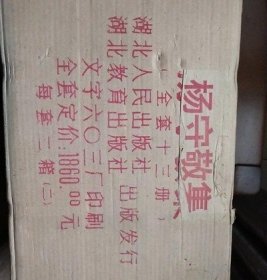 杨守敬集
(全套十三册)
湖北人民出版社
湖北教育出版社
出版发行
文字六〇三厂印刷
全套定价:1860.00元
每套二箱(二)